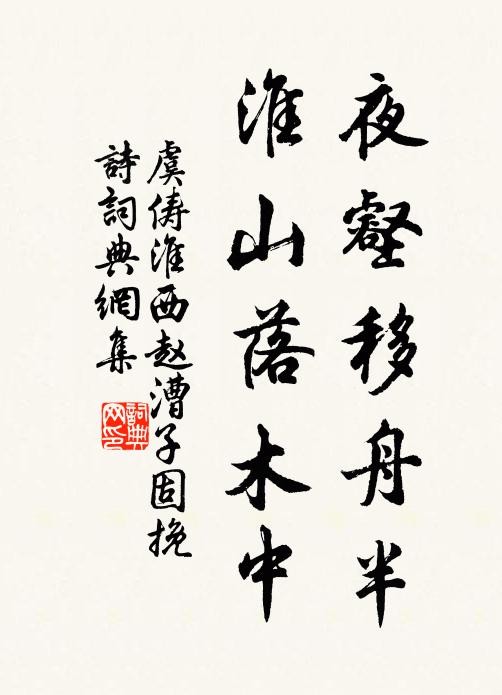 夜壑移舟半
淮山落木中
虞俦淮西赵漕子固挽
詩詞典網集
詞典网印